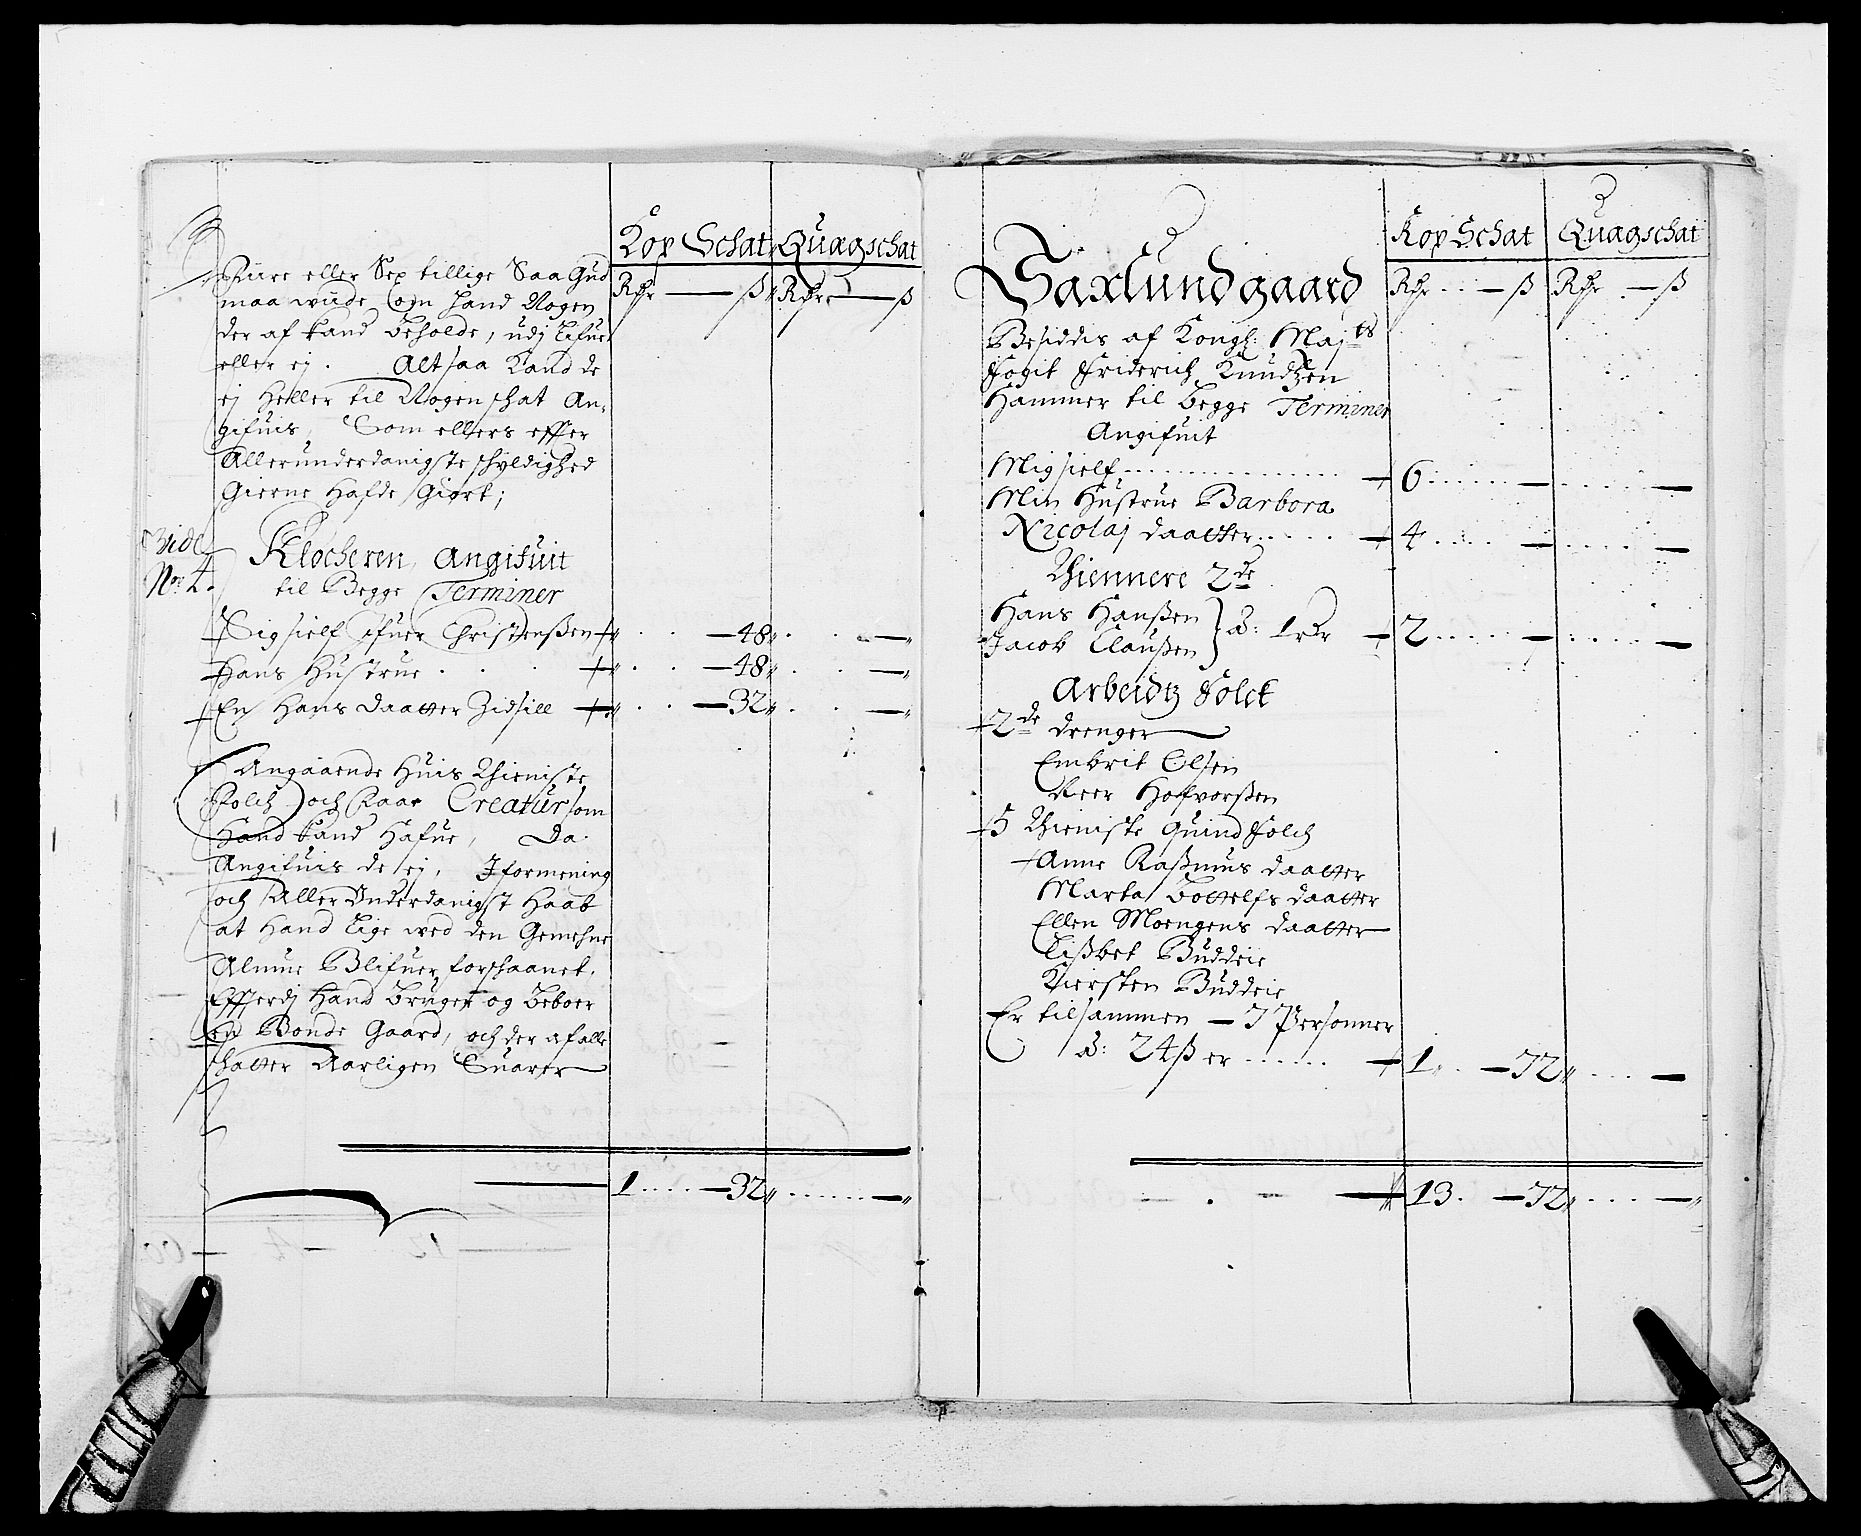 Kop Schat Quægschat
Rdr — ß Rdr — ß
Fiire eller Sex tillige Saa Gud
maa wiide, om hand Nogen
der af kand beholde, udj Lifue
eller ej. Altsaa Kand de
ej heller til Nogen schat An-
gifuis, Som ellers effter
Allerunderdanigste schyldighed
Gierne hafde Giort;
Vide
No 4.
Klocheren, Angifuit
til Begge Terminer
Sigsielf Ifuer Christenßen — 48
Hans Hustrue — 48
En Hans Daatter Zidsill — 32
Angaaende Huis Thieniste
Folch och Creatur som
Hand kand Hafue, Da
Angifuis de ej, Iformening
och Aller Onderdanigst Haab
at Hand Lige wed den Gemehne
Almue Blifuer forschaanet,
Effterdj Hand Bruger og Beboer
En Bonde Gaard, och der af alle
schatter Aarligen Suarer
1 — 32
Kop Schat Quægschat
Rdr — ß Rdr — ß
Saxlund gaard
Besiddis af Kongl: Majts
Fogit Friderich Knudtzen
Hammer til begge Terminer
Angifuit
Migsielf 6
Min Hustrue Barbora
Nicolaj daatter 4
Thiennere 2de
Hans Hanßen
Jacob Claußen } â: 1 rdr 2
Arbeidtz Folck
2de drenger
Embrit Olsen
Peer Hofvorßen
5 Thieniste Quindfolch
Anne Raßmus daatter
Marta Bottelfs daatter
Ellen Moengens daatter
Lißbet Buddeie
Kiersten Buddeie
Er tilsammen — 7 Personner
â: 24 ß er 1 — 72
13 — 72